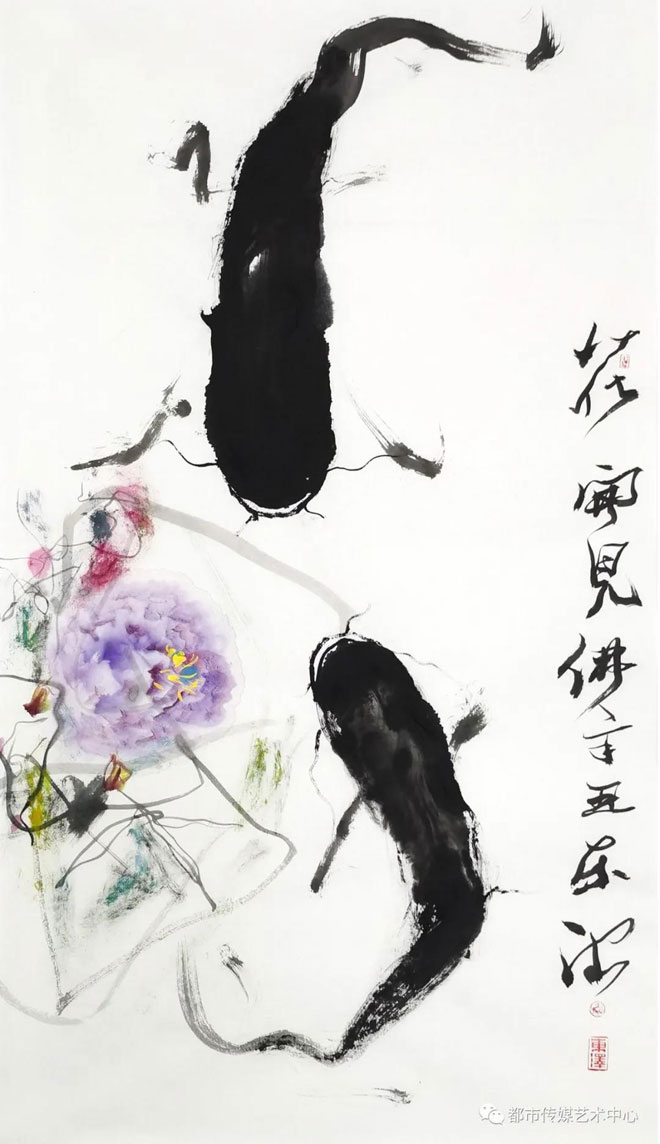 花開見佛辛丑东泽
東澤
都市传媒艺术中心